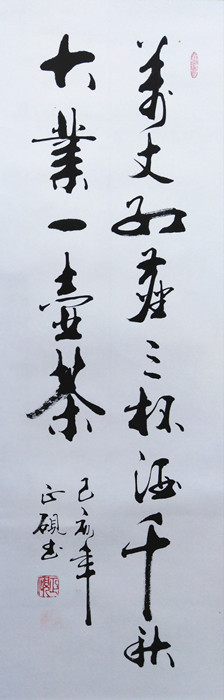 萬丈紅塵三杯酒千秋
大業一壺茶
己亥年
正硯书